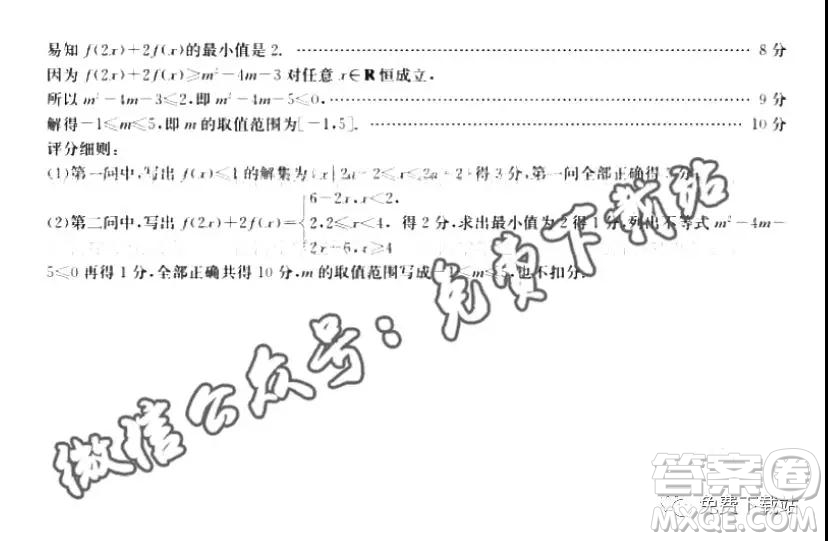 易知 f(2x)+2f(x)的最小值是2. ………… 8 分
因为 f(2x)+2f(x)≥m²-4m-3 对任意 x∈R 恒成立,
所以 m²-4m-3≤2,即 m²-4m-5≤0, ………… 9 分
解得-1≤m≤5,即 m 的取值范围为[-1,5]. ………… 10 分
评分细则:
(1)第一问中,写出 f(x)≤1 的解集为{x|2a-2≤x≤2a+2}得3分,第一问全部正确得5分;
(2)第二问中,写出 f(2x)+2f(x)={6-2x,x<2, 2,2≤x<4, 2x-6,x≥4 得2分,求出最小值为2得1分,列出不等式 m²-4m-
5≤0 再得1分,全部正确共得10分,m 的取值范围写成-1≤m≤5,也不扣分.
微信公众号:免费下载站
答案卷
免费下载站
MXQE.COM